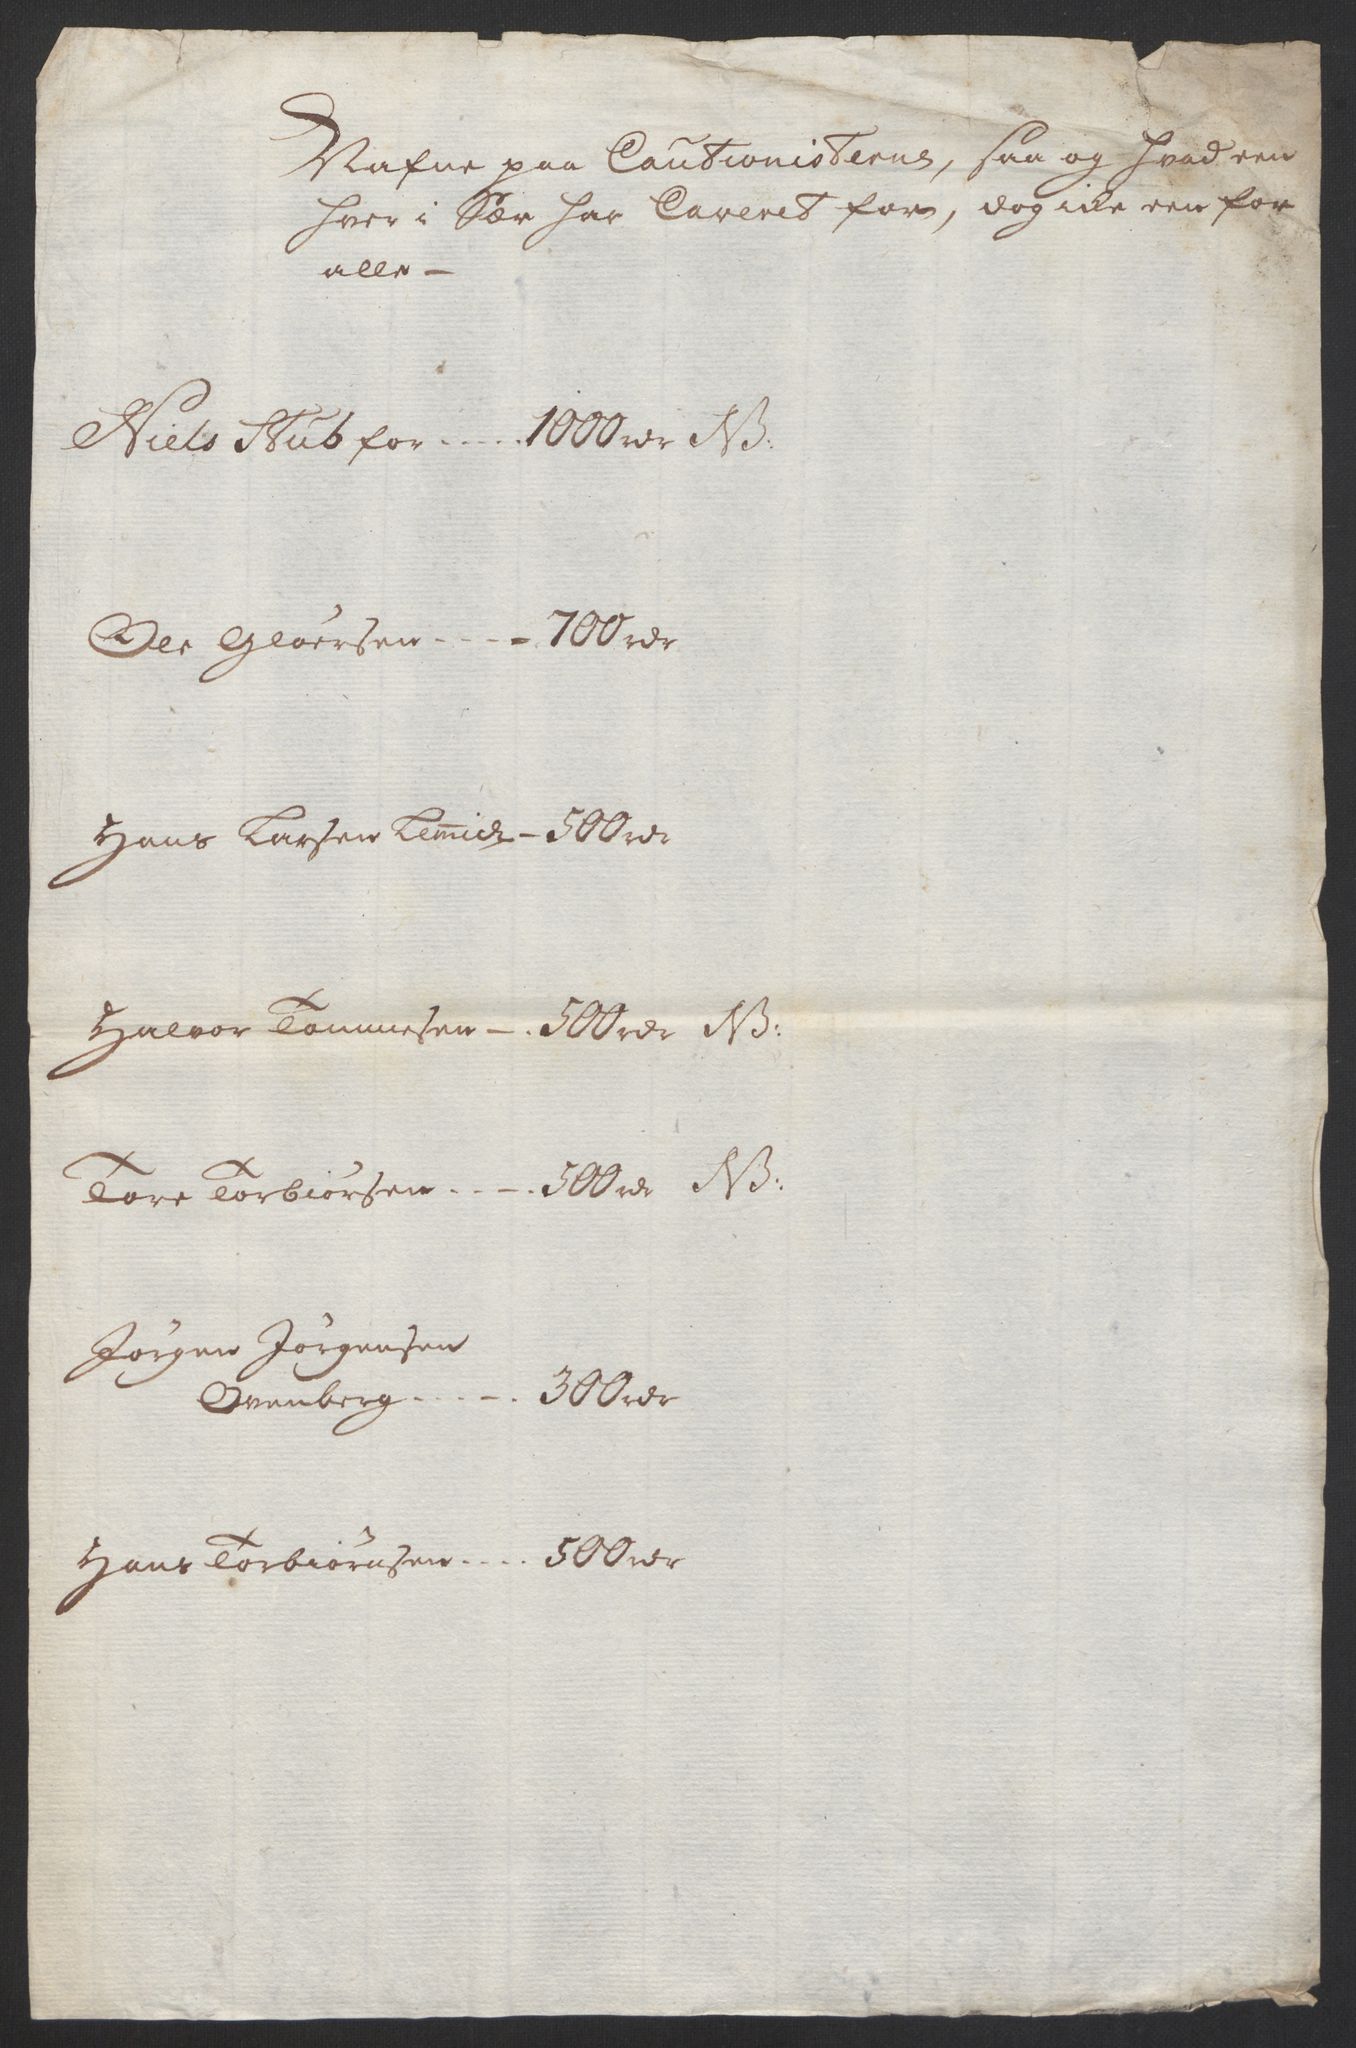 Nafne paa Cautionisterne, saa og hvad een
hver i Sær har Caveret for, dog icke een for
alle —
Niels Stub for ..... 1000 rdr NB:
Ole Gloersen ---- 700 rdr
Hans Larsen Lemich — 500 rdr
Halvor Tommesen —. 500 rdr NB:
Tore Torbiörsen ..—. 500 rdr NB:
Jörgen Jörgensen
Ovenberg ..—. 300 rdr
Hans Torbiörnsen .... 500 rdr